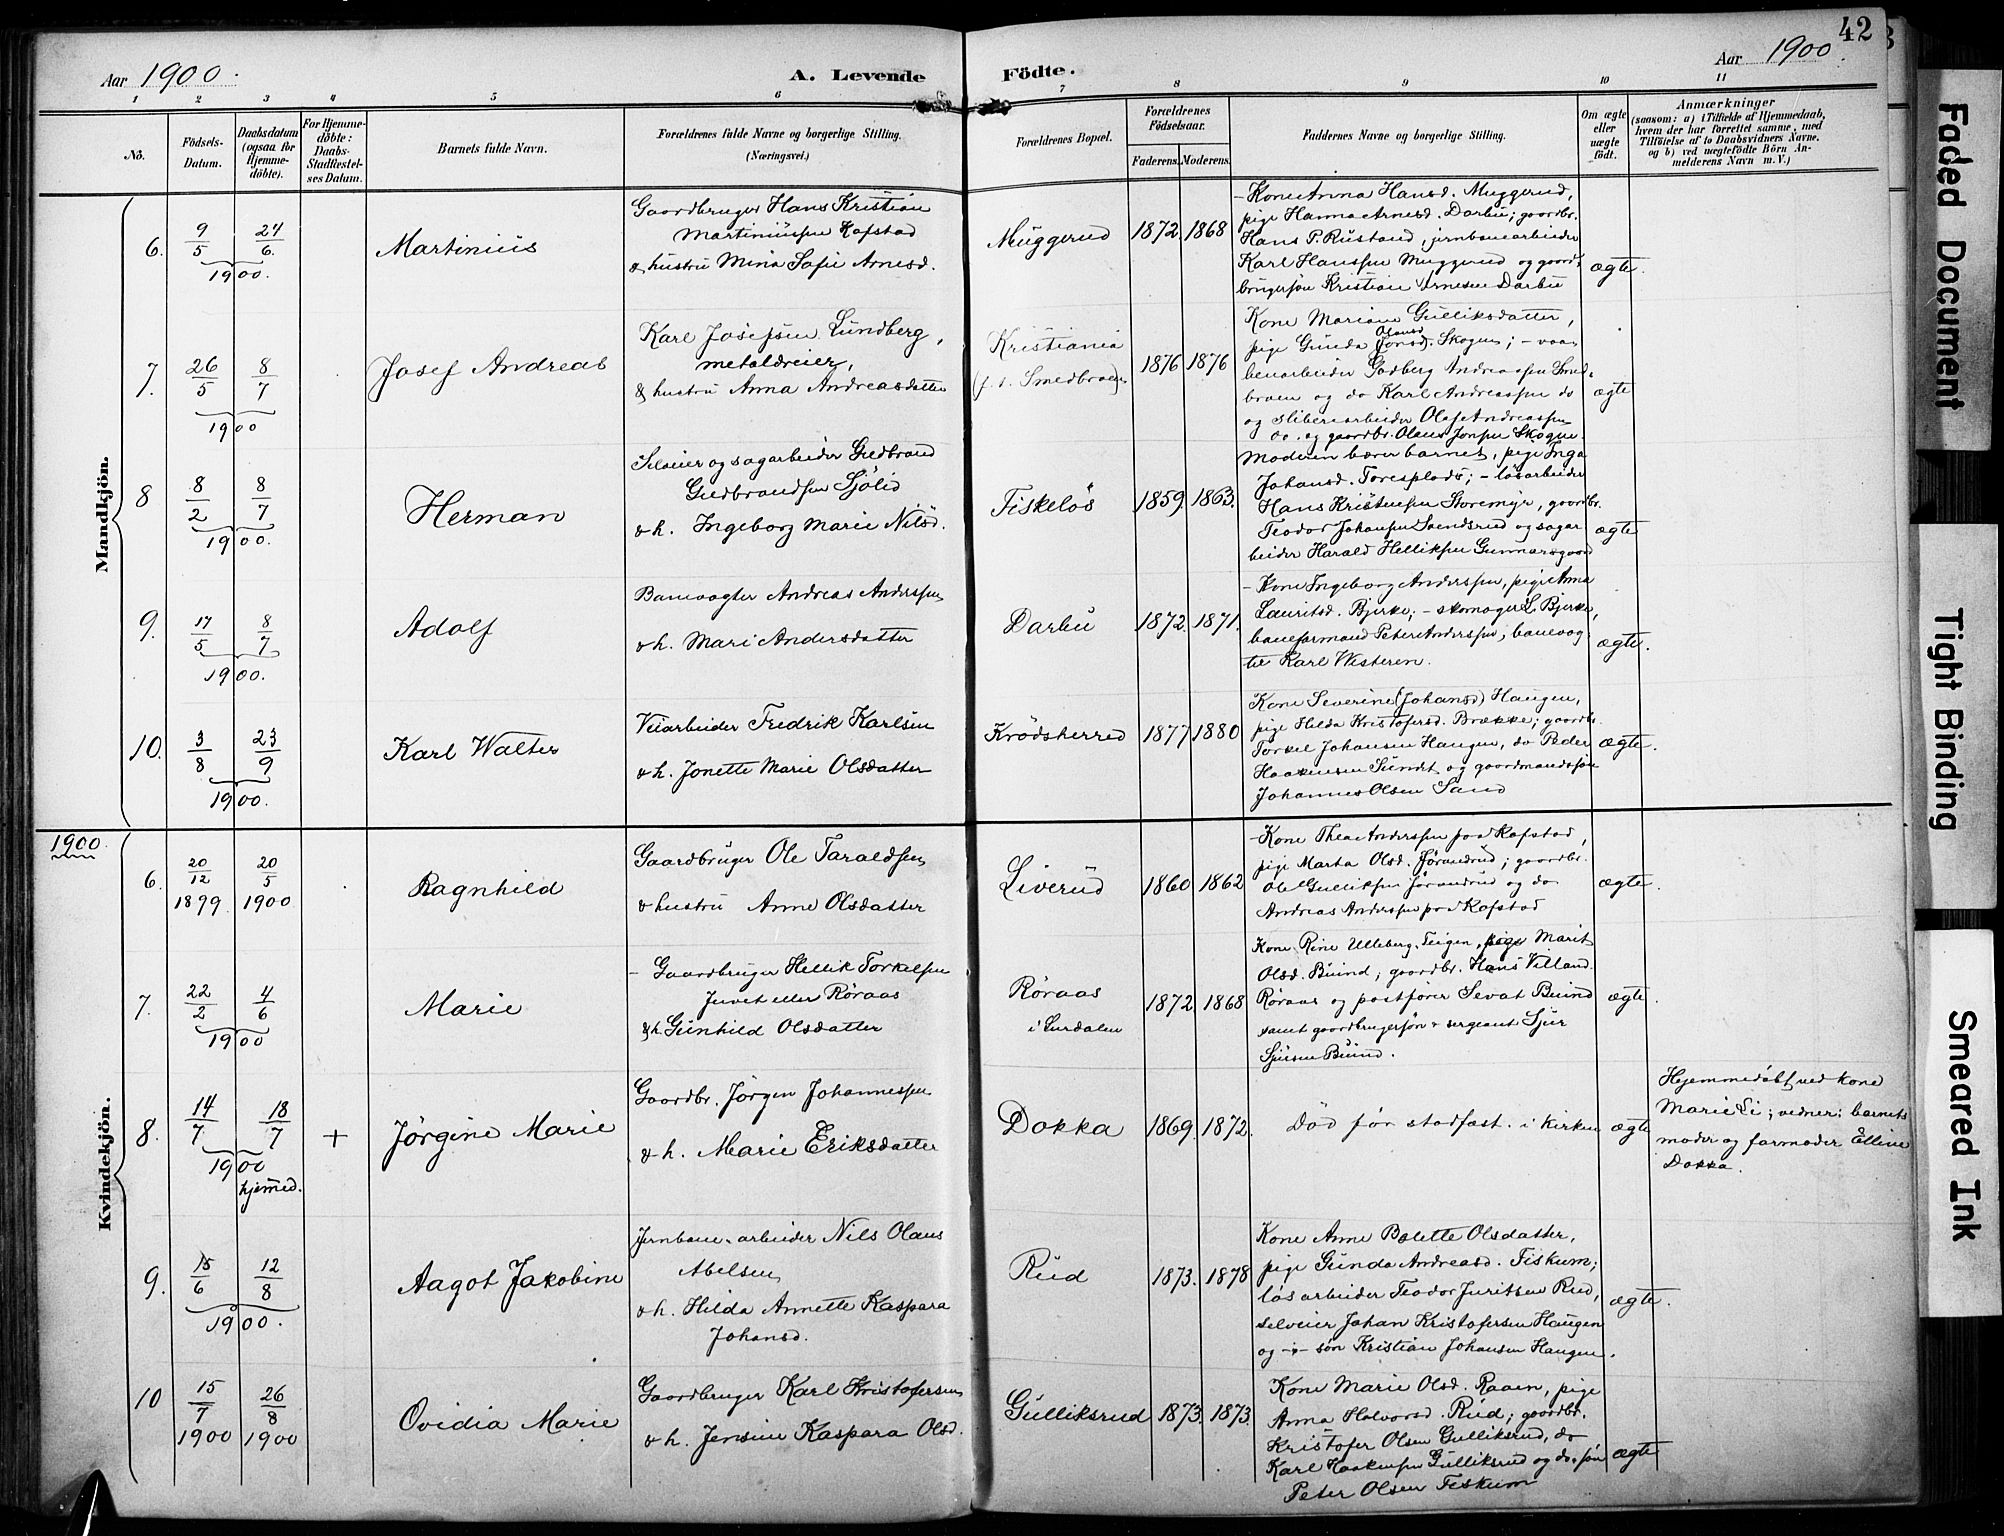 42
Aar 1900.
A. Levende
Födte.
Aar 1900.
1 2 3 4 5 6 7 8 9 10 11
No.
Födsels-
Datum.
Daabsdatum
(ogsaa for
Hjemme-
döbte).
For Hjemme-
döbte:
Daabs-
Stadfestel-
ses Datum.
Barnets fulde Navn.
Forældrenes fulde Navne og borgerlige Stilling.
(Næringsvei.)
Forældrenes Bopæl.
Forældrenes
Födselsaar.
Faderens. Moderens.
Faddernes Navne og borgerlige Stilling.
Om ægte
eller
uægte
födt.
Anmærkninger
(saasom: a) i Tilfælde af Hjemmedaab,
hvem der har forrettet samme, med
Tilföielse af to Daabsvidners Navne.
og b) ved uægtefödte Börn An-
melderens Navn m. V.)
Mandkjön.
6. 9/5 24/6 1900.
Martinius
Gaardbruger Hans Kristian
Martiniussen Kofstad
& hustru Mina Sofie Arnesd.
Muggerud
1872. 1868
- Kone Anna Hansd. Muggerud,
pige Hanna Arnesd. Darbu; gaardbr.
Hans P. Rustand, jernbanearbeider
Karl Hanssen Muggerud og gaard-
brugersøn Kristian Arnesen Darbu
ægte.
7. 26/5 8/7 1900
Josef Andreas
Karl Josefsen Lundberg,
metaldreier,
& hustru Anna Andreasdatter
Kristiania
(f. t. Smedbraaten)
1876 1876
Kone Mariane Gulliksdatter,
pige Gunda Olausd. (Jonsd.) Skogen; - vaa-
benarbeider Godberg Andreassen Smed-
braaen og do Karl Andreassen do
og sliberiarbeider Olaf Andreassen
do. og gaardbr. Olaus Jonsen Skogen.
ægte
8 8/2 8/7 1900.
Herman
Selveier og sagarbeider Gudbrand
Gudbrandsen Sjølid
& h. Ingeborg Marie Nilsd.
Fiskeløs
1859. 1863.
Moderen bærer barnet, pige Inga
Johansd. Toresplads; - løsarbeider
Hans Kristensen Storemyr, gaardbr.
Teodor Johansen Sandsrud og sagar
beider Harald Helliksen Gunnarsgaard
ægte
9. 17/5 8/7 1900.
Adolf
Banevogter Andreas Anderssen
& h. Mari Andersdatter
Darbu
1872. 1871.
- Kone Ingeborg Anderssen, pige Anna
Lauritsd. Bjerke; - skomager L. Bjerke,
baneformand Peter Anderssen, banevog-
ter Karl Westeren.
ægte.
10. 3/8 23/9 1900.
Karl Walter
Veiarbeider Fredrik Karlsen
& h. Jonette Marie Olsdatter
Krødsherred
1877 1880
Kone Severine (Johansd) Haugen,
pige Hilda Kristofersd. Brække; gaardbr.
Torkel Johansen Haugen, do Peder
Haakensen Sundet og gaardmandssøn
Johannes Olsen Sand
ægte.
1900.
Kvindekjön.
6. 20/12 1899. 20/5 1900
Ragnhild
Gaardbruger Ole Taraldsen
& hustru Anne Olsdatter
Liverud
1860 1862
- Kone Thea Anderssen paa Kofstad,
pige Marta Olsd. Jørandrud; gaardbr.
Ole Gulliksen Jørandrud og do
Andreas Anderssen paa Kofstad
ægte.
7. 22/2 4/6 1900
Marie
- Gaardbruger Hellik Torkelsen
Juvet eller Røraas
& h. Gunhild Olsdatter
Røraas
i Surdalen
1872 1868
Kone Rine Ulleberg-Teigen, pige Marit
Olsd. Buind; gaardbr. Hans Villand
Røraas og postfører Sevat Buind
samt gaardbrugersøn & sergeant Sjur
Sjursen Buind.
ægte.
8. 14/7 18/7 1900 hjemmed. +
Jørgine Marie
Gaardbr. Jørgen Johannessen
& h. Marie Eriksdatter
Dokka
1869. 1872.
Död før stadfæst. i Kirken
ægte
Hjemmedøbt ved kone
Marie Li; vidner: barnets
moder og farmoder Elline
Dokka.
9. 15/6 12/8 1900.
Aagot Jakobine
Jernbane-arbeider Nils Olaus
Abelsen
& h. Hilda Annette Kaspara
Johansd.
Rud
1873. 1878
Kone Anne Bolette Olsdatter,
pige Gunda Andreasd. Fiskum;
løsarbeider Teodor Juritsen Rud,
selveier Johan Kristofersen Haugen
og -"- søn Kristian Johansen Haugen.
ægte.
10 15/7 1900 26/8 1900
Ovidia Marie
Gaardbruger Karl Kristofersen
& h. Jensine Kaspara Olsd.
Gulliksrud
1873. 1873.
Kone Marie Olsd. Raaen, pige
Anna Halvorsd. Rud; gaardbr.
Kristofer Olsen Gulliksrud, do
Karl Haakensen Gulliksrud og do. søn
Peter Olsen Fiskum
ægte
Faded Document
Tight Binding
Smeared Ink